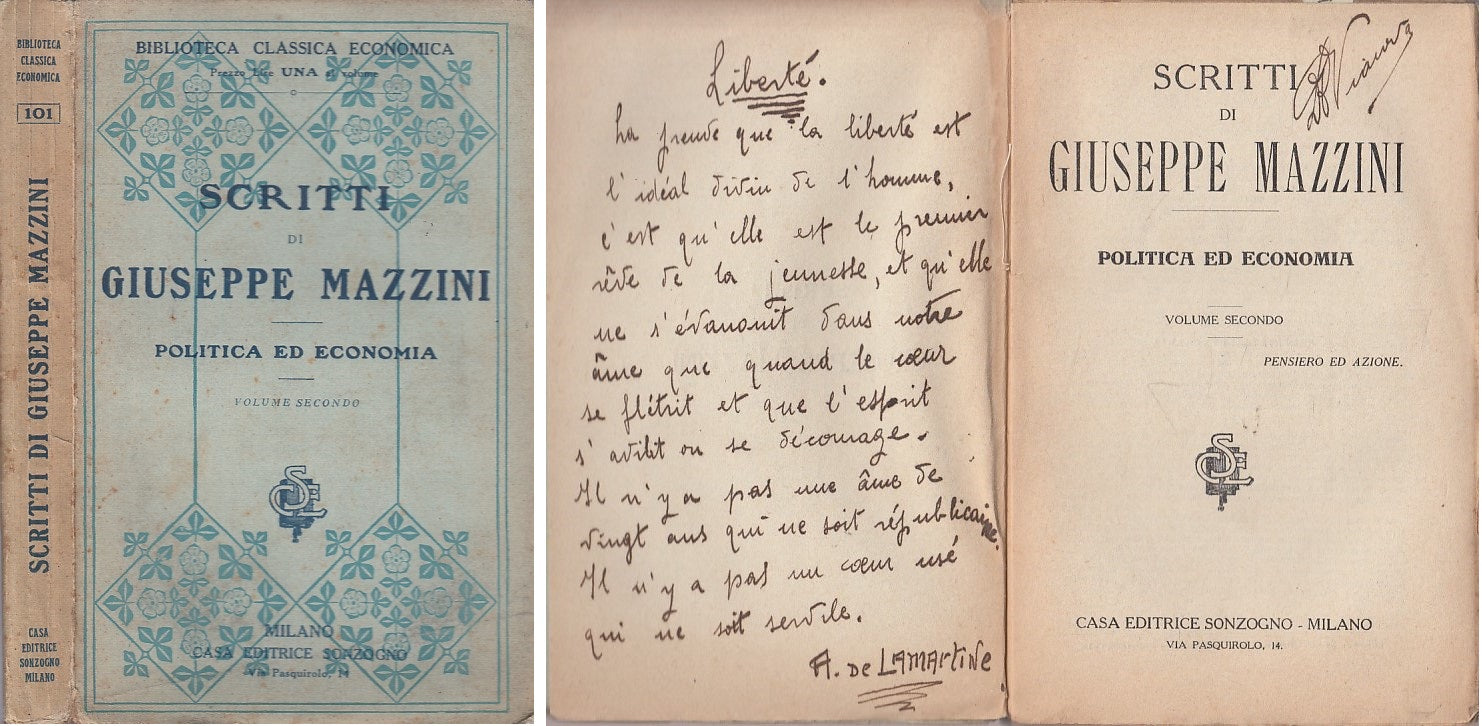 BIBLIOTECA
CLASSICA
ECONOMICA
101
SCRITTI DI GIUSEPPE MAZZINI
CASA
EDITRICE
SONZOGNO
MILANO
BIBLIOTECA CLASSICA ECONOMICA
Prezzo Lire UNA al volume
SCRITTI
DI
GIUSEPPE MAZZINI
POLITICA ED ECONOMIA
VOLUME SECONDO
SCE
MILANO
CASA EDITRICE SONZOGNO
Via Pasquirolo, 14
Liberté.
que la liberté est
l'idéal divin de l'homme,
c'est qu'elle est le premier
rêve de la jeunesse, et qu'elle
ne s'évanouit dans notre
âme que quand le cœur
se flétrit et que l'esprit
s'avilit ou se décourage.
Il n'y a pas une âme de
vingt ans qui ne soit républicaine.
Il n'y a pas un cœur usé
qui ne soit servile.
A. de LAMARTINE
SCRITTI
DI
GIUSEPPE MAZZINI
POLITICA ED ECONOMIA
VOLUME SECONDO
PENSIERO ED AZIONE.
SCE
CASA EDITRICE SONZOGNO - MILANO
VIA PASQUIROLO, 14.